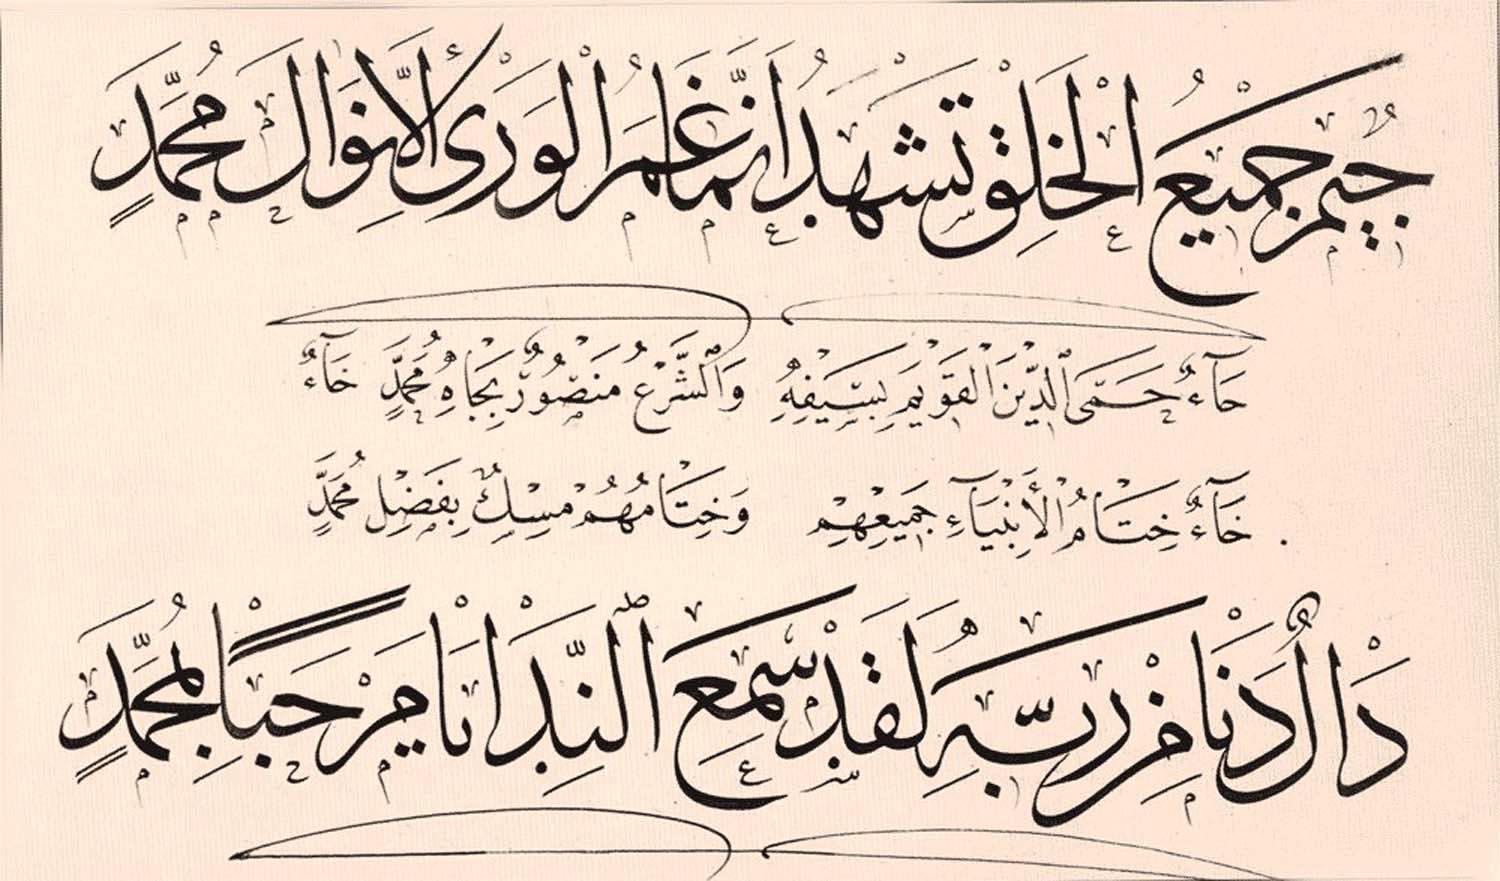 جِيمٌ جَمِيعُ الْخَلْقِ تَشْهَدُ أَنَّمَا غَمَرَ الْوَرَىٰ إِلَّا نَوَالُ مُحَمَّدٍ
حَآءٌ حَمَى الدِّينَ الْقَوِيمَ بِسَيْفِهِ وَالشَّرْعُ مَنْصُورٌ بِجَاهِ مُحَمَّدٍ خَآءٌ
خَآءٌ خِتَامُ الْأَنْبِيَآءِ جَمِيعِهِمْ وَخِتَامُهُمْ مِسْكٌ بِفَضْلِ مُحَمَّدٍ
دَالٌ دَنَا مِنْ رَبِّهِ لَقَدْ سَمِعَ النِّدَا يَا مَرْحَبًا بِمُحَمَّدٍ